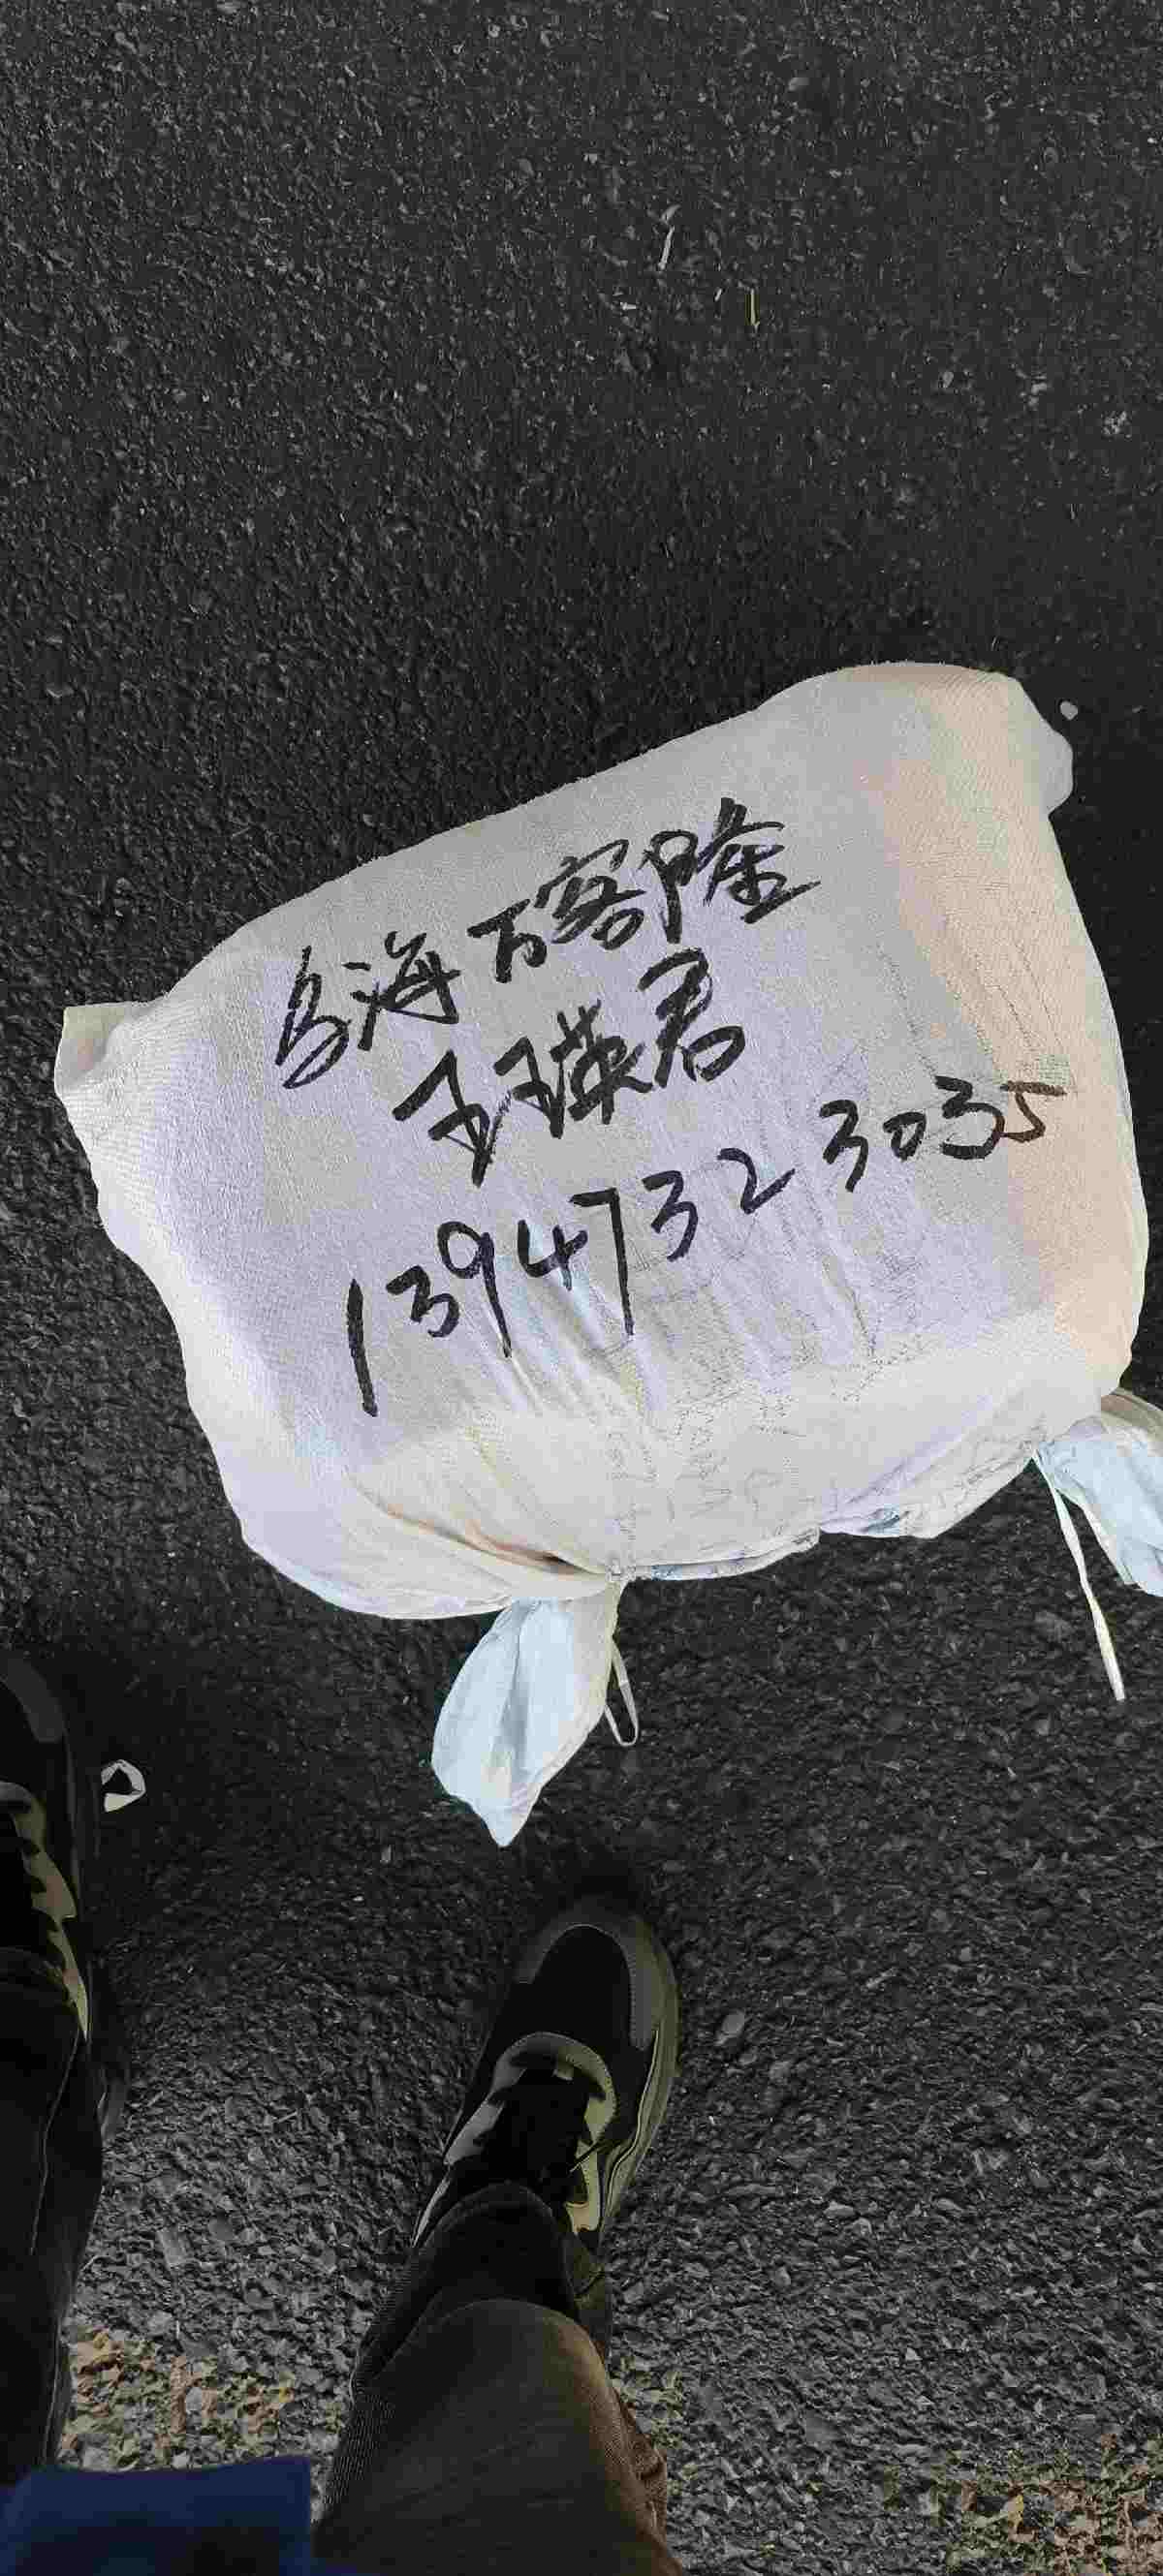 乌海万客隆
王瑛君
13947323035